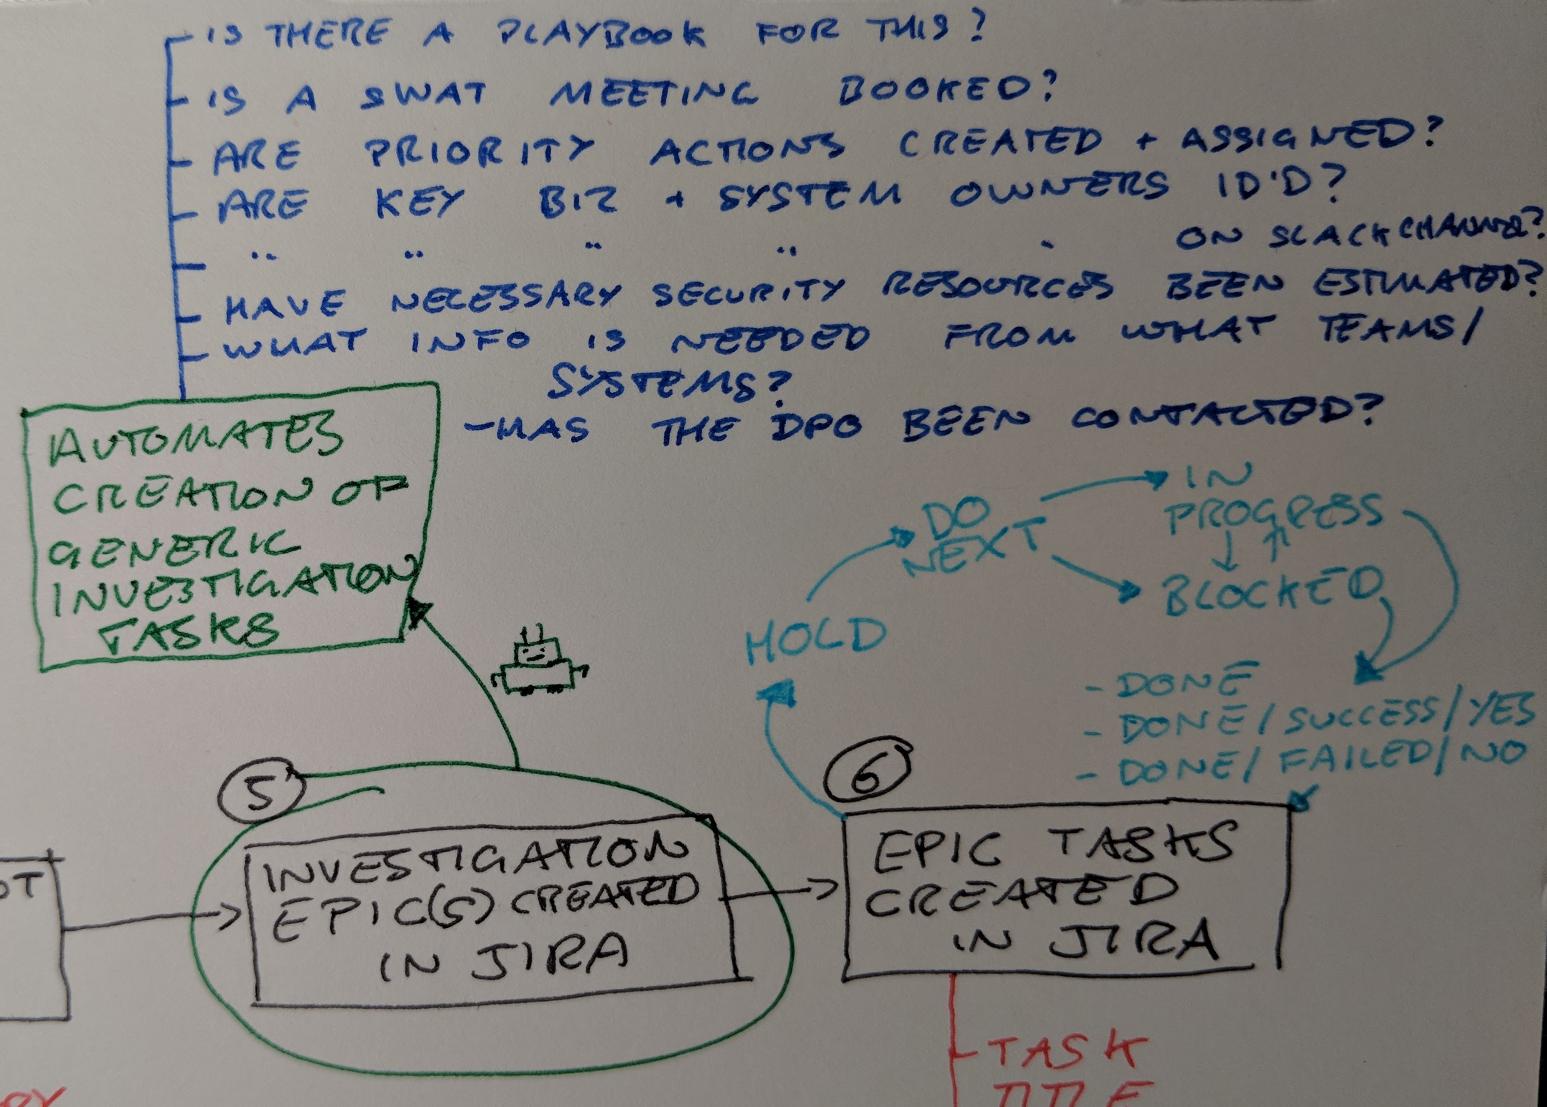 IS THERE A PLAYBOOK FOR THIS?
IS A SWAT MEETING BOOKED?
ARE PRIORITY ACTIONS CREATED + ASSIGNED?
ARE KEY BIZ + SYSTEM OWNERS ID'D?
" " " " " ON SLACK CHANNEL?
HAVE NECESSARY SECURITY RESOURCES BEEN ESTIMATED?
WHAT INFO IS NEEDED FROM WHAT TEAMS/
SYSTEMS?
- HAS THE DPO BEEN CONTACTED?
AUTOMATES
CREATION OF
GENERIC
INVESTIGATION
TASKS
HOLD
DO
NEXT
IN
PROGRESS
BLOCKED
- DONE
- DONE / SUCCESS / YES
- DONE / FAILED / NO
5
INVESTIGATION
EPIC(S) CREATED
IN JIRA
6
EPIC TASKS
CREATED
IN JIRA
TASK
TITLE